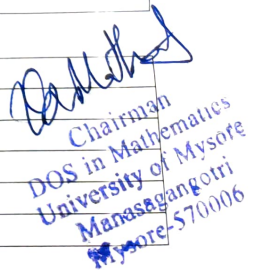 Chairman
DOS in Mathematics
University of Mysore
Manasagangotri
Mysore-570006